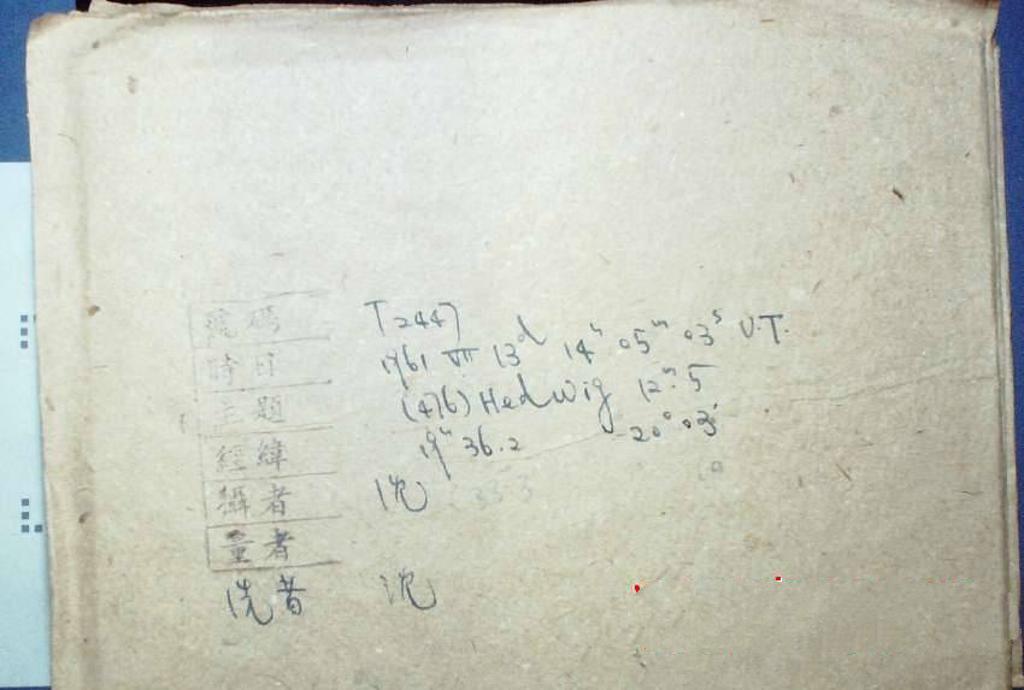 號碼 T2447
時日 1961 VII 13d 14h 05m 03s U.T.
主題 (476) Hedwig 12m.5
經緯 19h 36.2 -20° 03'
攝者 沈
量者
洗者 沈